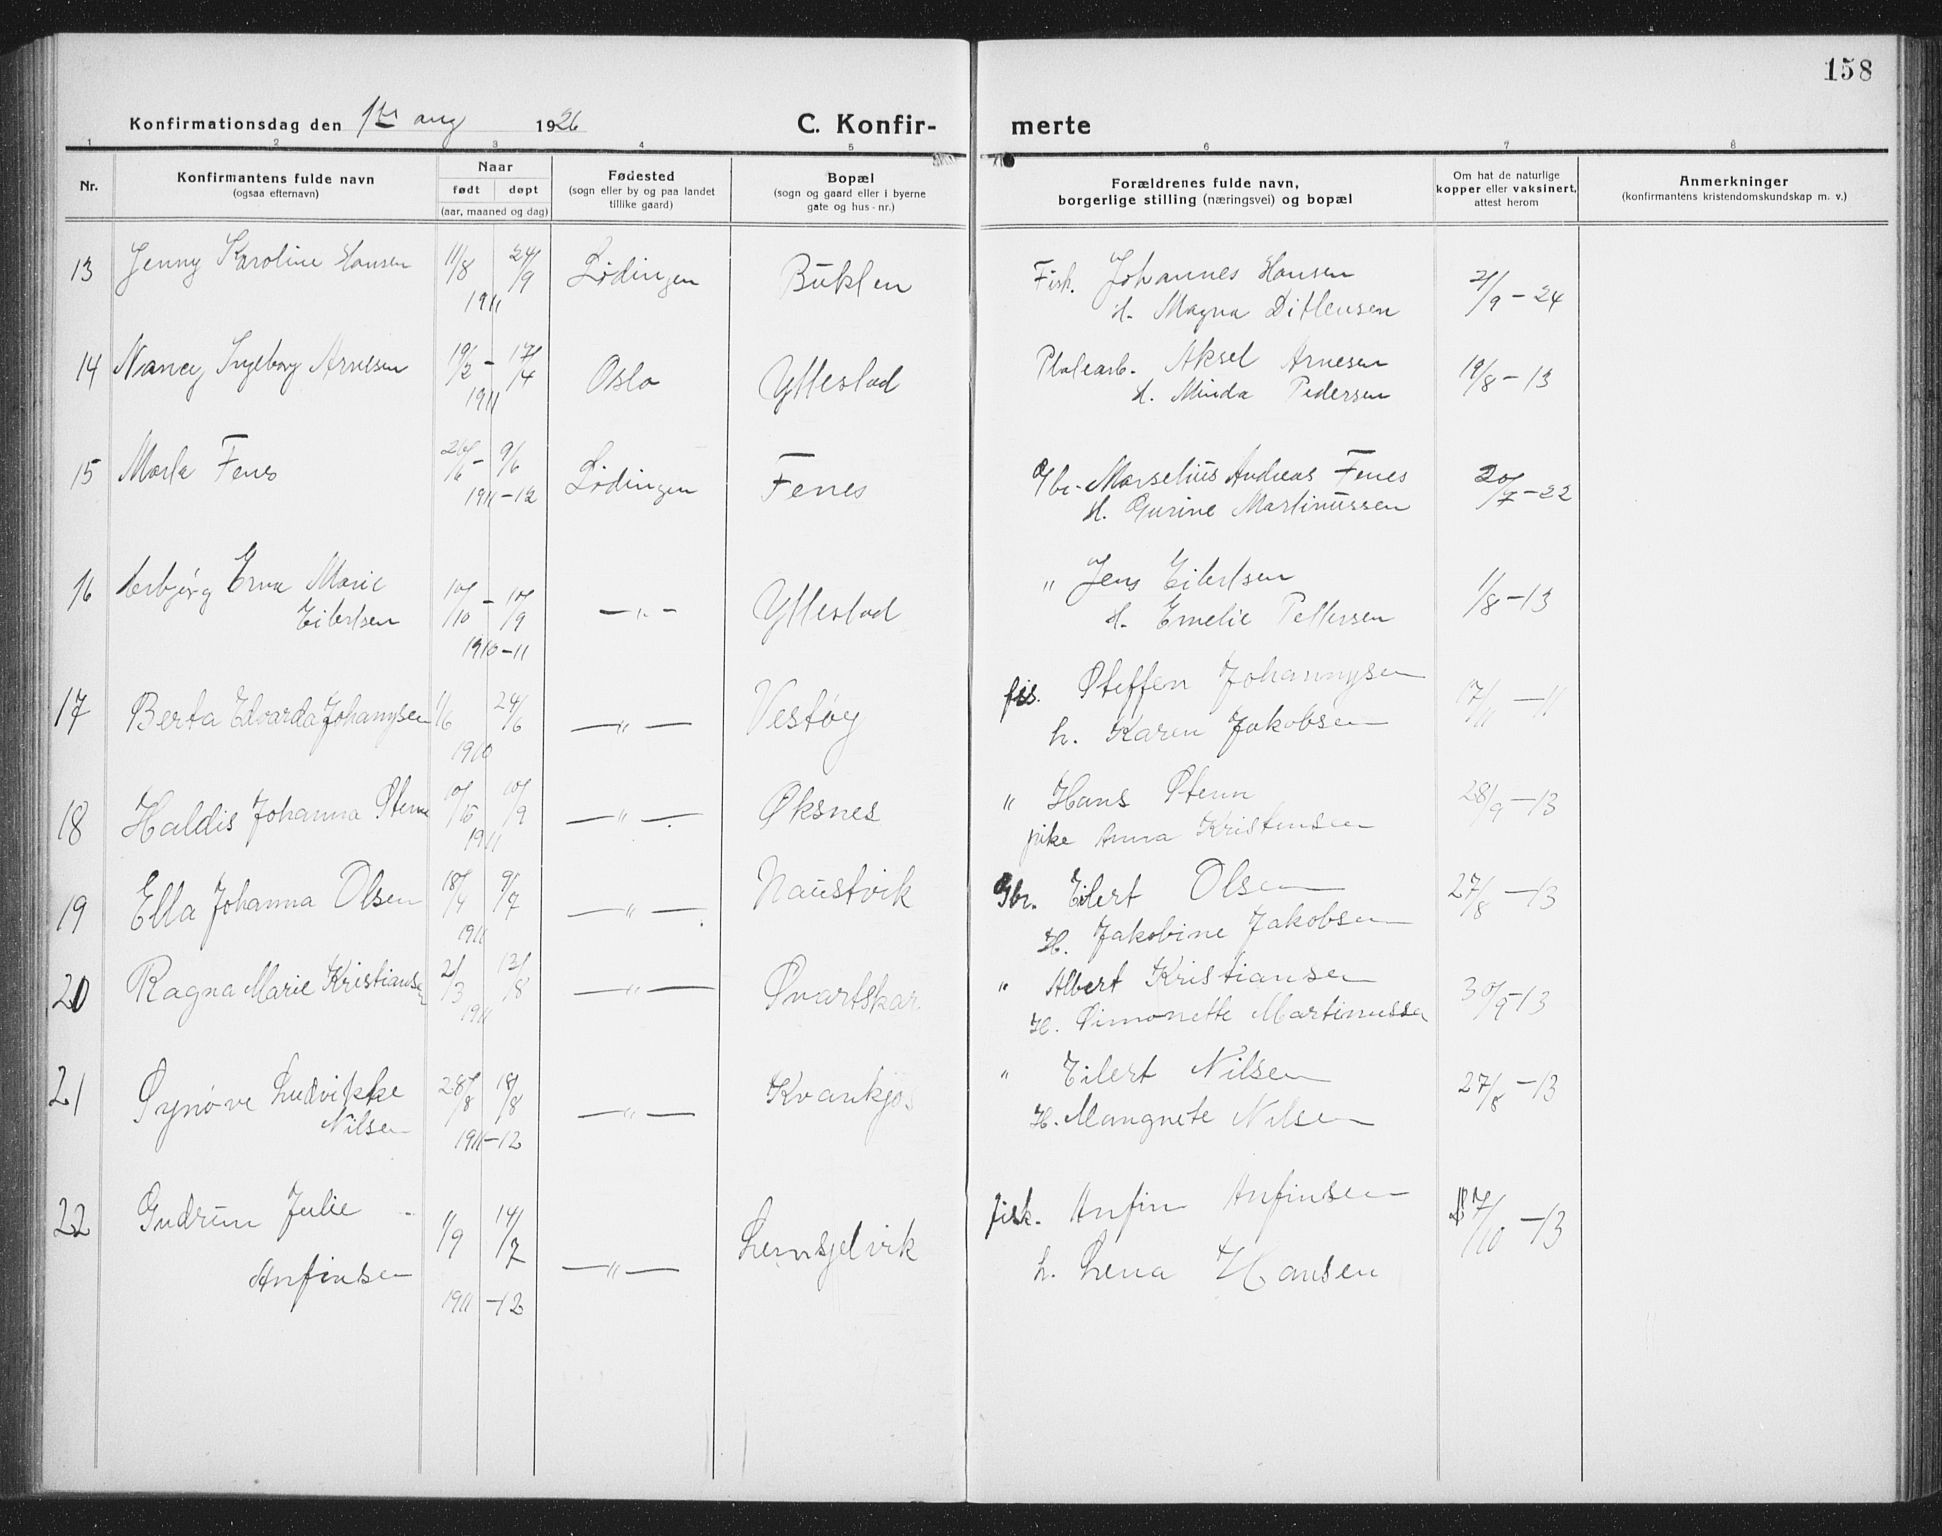 158
Konfirmationsdag den 1ste aug 1926
C. Konfirmerte
1 2 3 4 5 6 7 8
Nr.
Konfirmantens fulde navn
(ogsaa efternavn)
Naar
født døpt
(aar, maaned og dag)
Fødested
(sogn eller by og paa landet
tillike gaard)
Bopæl
(sogn og gaard eller i byerne
gate og hus-nr.)
Forældrenes fulde navn,
borgerlige stilling (næringsvei) og bopæl
Om hat de naturlige
kopper eller vaksinert,
attest herom
Anmerkninger
(konfirmantens kristendomskundskap m. v.)
13 Jenny Karoline Hansen 11/8 24/9 Lødingen Buklen Fisk. Johannes Hansen 21/9 - 24
1911 H. Magna Ditlevsen
14 Nancy Ingeborg Arnesen 19/2 - 17/4 Oslo Yttestad Aksel Arnesen 19/8 - 13
1911 H. Minda Pedersen
15 Marta Fenes 9/6 Lødingen Fenes Gbr. Marselius Andreas Fenes 20/7 - 22
1911 - 12 H. Gurine Martinussen
16 Asbjørg Erna Marie 10/10 - 10/9 — " — Yttestad " Jens Eilertsen 1/8 - 13
Eilertsen H. Emelie Pettersen
1910 - 11
17 Berta Edvarda Johannysen 1/6 24/6 — " — Vestøy fis. Steffen Johannysen 17/11 - 11
1910 h. Karen Jakobsen
18 Haldis Johanna Stenn 10/9 — " — Øksnes " Hans Stenn 28/9 - 13
1911 pike Anna Kristensen
19 Ella Johanna Olsen 18/4 9/7 — " — Naustvik Gbr. Eilert Olsen 27/8 - 13
1911 H. Jakobine Jakobsen
20 Ragna Marie Kristiansen 2/3 13/8 — " — Svartskar " Albert Kristiansen 30/9 - 13
1911 H. Simonette Martinussen
21 Synøve Ludvikke 28/8 18/8 — " — Kvankjos " Eilert Nilsen 27/8 - 13
Nilsen H. Mangnete Nilsen
1911 - 12
22 Gudrun Julie 1/9 14/7 — " — fisk. Anfin Anfinsen 17/10 - 13
Anfinsen h. Lena Hansen
1911 - 12